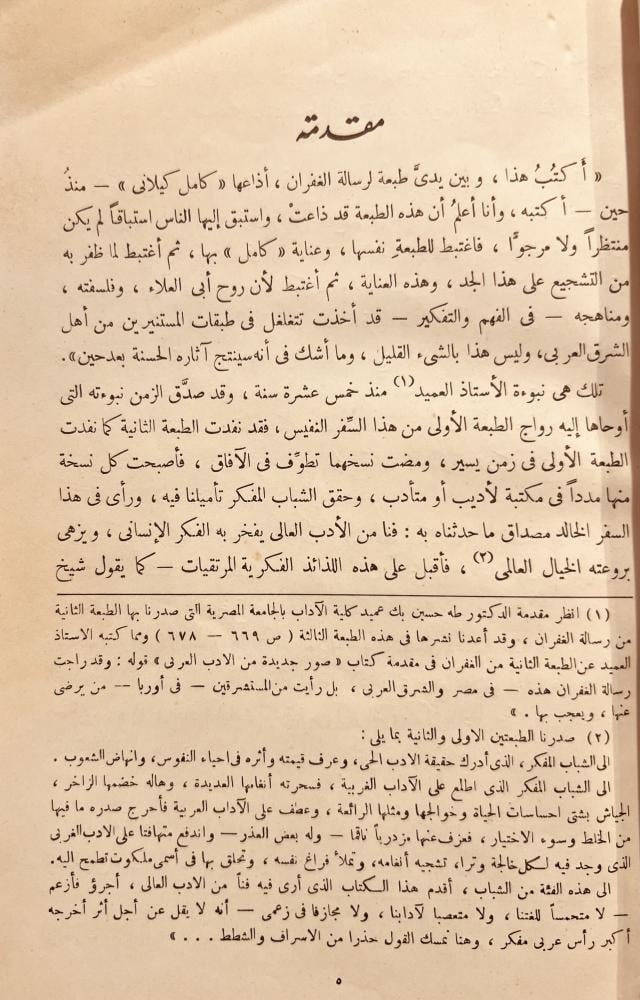 مقدمته
« أَكتُبُ هذا ، وبين يدىَّ طبعة لرسالة الغفران ، أذاعها « كامل كيلانى » — منذُ
حين — أكتبه ، وأنا أعلمُ أن هذه الطبعة قد ذاعتْ ، واستبق إليها الناس استباقاً لم يكن
منتظراً ولا مرجوًّا ، فاغتبط للطبعةِ نفسها ، وعناية « كامل » بها ، ثم أغتبط لما ظفر به
من التشجيع على هذا الجد ، وهذه العناية ، ثم أغتبط لأن روح أبى العلاء ، وفلسفته ،
ومناهجه — فى الفهم والتفكير — قد أخذت تتغلغل فى طبقات المستنيرين من أهل
الشرق العربى، وليس هذا بالشىء القليل ، وما أشك فى أنه سينتج آثاره الحسنة بعد حين».
تلك هى نبوءة الأستاذ العميد(١) منذ خمس عشرة سنة ، وقد صدَّق الزمن نبوءته التى
أوحاها إليه رواج الطبعة الأولى من هذا السِّفر النفيس ، فقد نفدت الطبعة الثانية كما نفدت
الطبعة الأولى فى زمن يسير ، ومضت نسخهما تطوِّف فى الآفاق ، فأصبحت كل نسخة
منها مدداً فى مكتبة لأديب أو متأدب ، وحقق الشباب المفكر تأميلنا فيه ، ورأى فى هذا
السفر الخالد مصداق ما حدثناه به : فنا من الأدب العالى يفخر به الفكر الإنسانى ، ويزهى
بروعته الخيال العالمى(٢) ، فأقبل على هذه اللذائذ الفكرية المرتقيات — كما يقول شيخ
(١) انظر مقدمة الدكتور طه حسين بك عميد كلية الآداب بالجامعة المصرية التى صدرنا بها الطبعة الثانية
من رسالة الغفران ، وقد أعدنا نشرها فى هذه الطبعة الثالثة ( ص ٦٦٩ — ٦٧٨ ) ومما كتبه الاستاذ
العميد عن الطبعة الثانية من الغفران فى مقدمة كتاب « صور جديدة من الادب العربى » قوله : وقد راجت
رسالة الغفران هذه — فى مصر والشرق العربى ، بل رأيت من المستشرقين — فى أوربا -- من يرضى
عنها ، ويعجب بها . »
(٢) صدرنا الطبعتين الاولى والثانية بما يلى :
الى الشباب المفكر ، الذى أدرك حقيقة الادب الحى، وعرف قيمته وأثره فى احياء النفوس، وانهاض الشعوب .
الى الشباب المفكر الذى اطلع على الآداب الغربية ، فسحرته أنغامها العديدة ، وهاله خضمها الزاخر ،
الجياش بشتى احساسات الحياة وخوالجها ومثلها الرائعة ، وعطف على الآداب العربية فأحرج صدره ما فيها
من الخلط وسوء الاختيار ، فعزف عنها مزدرياً ناقما — وله بعض العذر — واندفع متهافتا على الادب الغربى
الذى وجد فيه لكل خالجة وترا، تشجيه أنغامه، وتملأ فراغ نفسه ، وتحلق بها فى أسمى ملكوت تطمح اليه.
الى هذه الفئة من الشباب ، أقدم هذا الكتاب الذى أرى فيه فناً من الادب العالى ، أجرؤ فأزعم
— لا متحمساً للغتنا ، ولا متعصبا لآدابنا ، ولا مجازفا فى زعمى — أنه لا يقل عن أجل أثر أخرجه
أكبر رأس عربى مفكر ، وهنا نمسك القول حذرا من الاسراف والشطط . . . »
٥